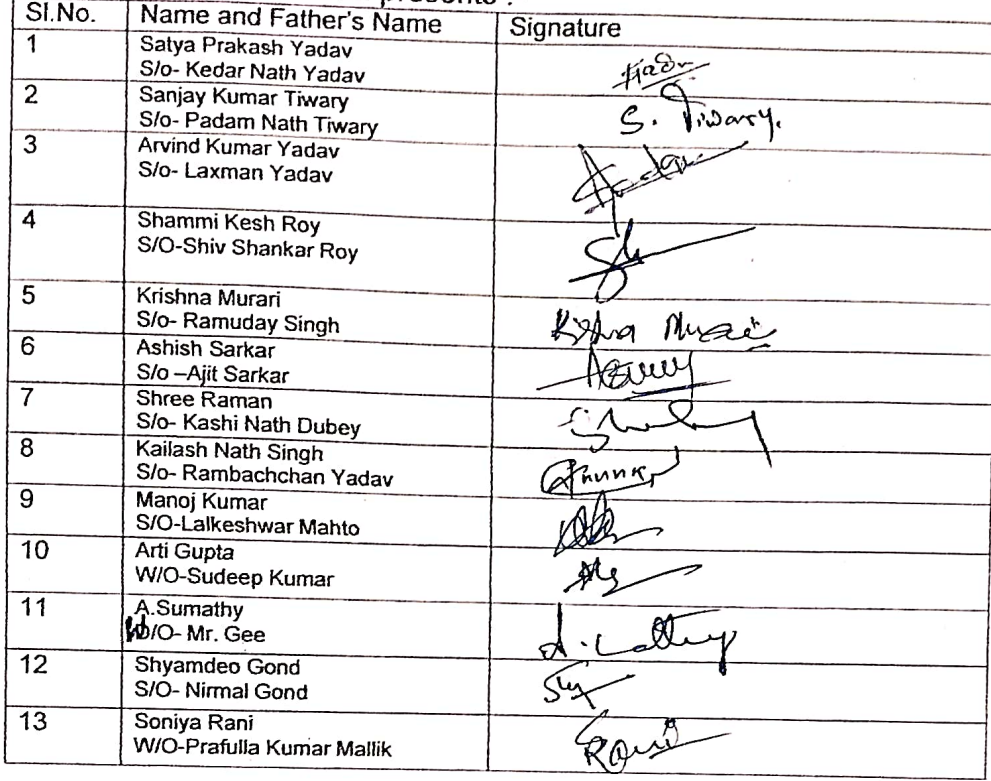 Sl.No. Name and Father's Name Signature
1 Satya Prakash Yadav
S/o- Kedar Nath Yadav
2 Sanjay Kumar Tiwary S. Tiwary.
S/o- Padam Nath Tiwary
3 Arvind Kumar Yadav
S/o- Laxman Yadav
4 Shammi Kesh Roy
S/O-Shiv Shankar Roy
5 Krishna Murari
S/o- Ramuday Singh
6 Ashish Sarkar
S/o –Ajit Sarkar
7 Shree Raman
S/o- Kashi Nath Dubey
8 Kailash Nath Singh
S/o- Rambachchan Yadav
9 Manoj Kumar
S/O-Lalkeshwar Mahto
10 Arti Gupta
W/O-Sudeep Kumar
11 A.Sumathy
W/O- Mr. Gee
12 Shyamdeo Gond
S/O- Nirmal Gond
13 Soniya Rani
W/O-Prafulla Kumar Mallik